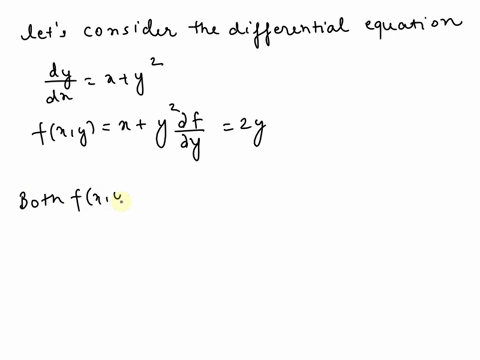 let's consider the differential equation
dy/dx = x + y²
f(x,y) = x + y² ∂f/∂y = 2y
Both f(x,y